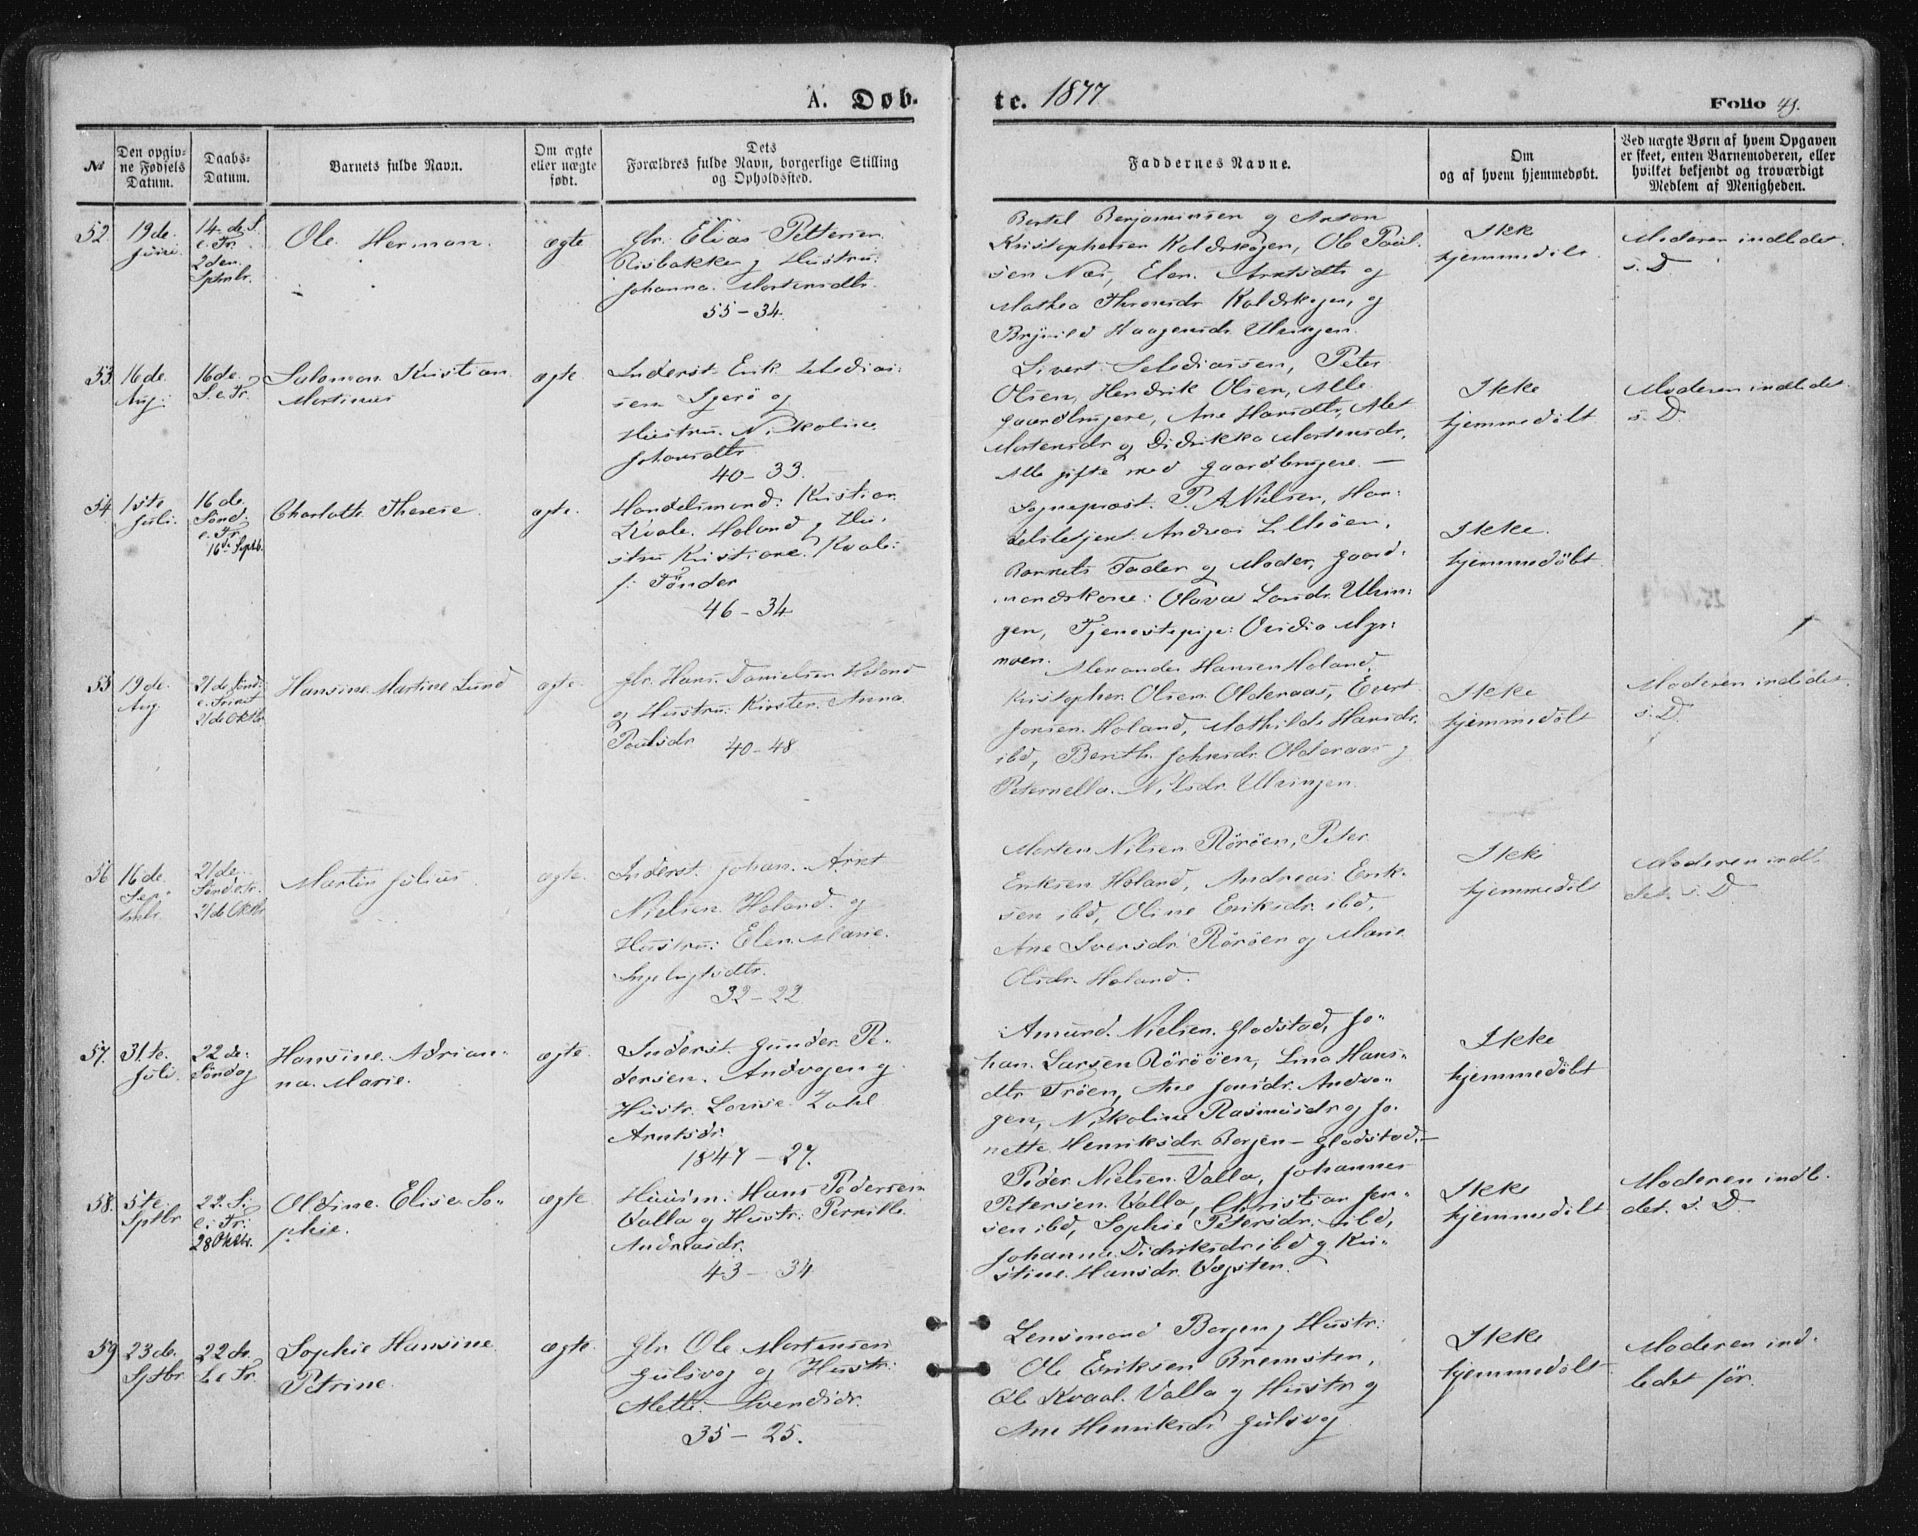 A. Døb-
te. 1877
Folio 49.
№
Den opgiv-
ne Fødsels
Datum.
Daabs-
Datum.
Barnets fulde Navn.
Om ægte
eller uægte
født.
Dets
Forældres fulde Navn, borgerlige Stilling
og Opholdssted.
Faddernes Navne.
Om
og af hvem hjemmedøbt.
Ved uægte Børn af hvem Opgaven
er skeet, enten Barnemoderen, eller
hvilket bekjendt og troværdigt
Medlem af Menigheden.
52
19de
Juni
14. de S.
e. Tr.
2den
Sptmbr.
Ole Herman.
ægte
gbr: Elias Pettersen
Risbakke og Hustru:
Johanna Mortensdtr.
55-34.
Bertel Benjaminsen og Anton
Kristophersen Koldskogen, Ole Paul-
sen Næs, Elen Arntsdtr og
Mathea Thronsdr Koldskogen, og
Haagensdr. Ulvingen.
Ikk
hjemmedøbt.
Moderen indledet
s. D
53.
16de
Aug:
16de
S. e Tr.
Salomon Kristian
Martinus
ægte
Inderst Erik Zelediæ-
sen og
Hustru Nikoline
Johansdtr
40-33.
Sivert Peter
Olsen, Hendrik Olsen, Alle
gaardbrugere, Ane Hansdtr, Alet
Mortensdr og Didrikka Mortensdr,
Alle gifte med gaardbrugere. —
Ikke
hjemmedøbt
Moderen indledet
s. D.
54.
15te
Juli.
16 de
Sønd.
e. Tr.
16de Septb.
Charlotte Therese
ægte.
Handelsmand: Kristian
Kvale Holand og Hu-
stru Kristiane Kvale
f: Tønder
46-34
Sogneprest P. A Nielsen, Han-
Andreas
Barnets Fader og Moder, gaard-
mandskone: Olava Ulvin-
gen, Tjenestepige: Ovidia Myr-
moen.
Ikke
hjemmedøbt.
55
19 de
Aug
21de Sønd.
e. Trinit
21de Oktbr
Hansine Martine Lund
ægte.
gbr. Hans Danielsen Holand
og Hustru: Kirsten Anna
Poulsdr
40-48
Alexander Hansen Holand,
Kristopher Olsen Olderaas, Evert
Jonsen Holand, Mathilde Hansdr.
ibd, Berith Johnsdr. Olderaas og
Peternella Nilsdr. Ulvingen.
Ikke
hjemmedøbt
Moderen indledet.
s. D.
56
16de
Sep-
tmbr.
21de
Sønd e tr.
21de Oktbr
Martin Julius
ægte.
Inderst Johan Arnt
Nielsen Holand og
Hustru: Elen Marie
32-22.
Morten Nilsen Rörøen, Peter
Eriksen Holand, Andreas Erik-
sen ibd, Oline Eriksdr. ibd,
Ane Rörøen og Marie
Olsdr. Holand.
Ikke
hjemmedøbt
Moderen indle
det. s. D
57.
31te
Juli.
22 de
Søndag
Hansine Adrian-
na Marie.
ægte.
Inderst Gunder Pe-
dersen Andvagen og
Hustr. Lovise Zahl
Arntsdr.
1847-27.
Amund Nielsen Gladstad, Jo-
han Larsen Rörøen, Lina Hans-
dtr Trøen, Ane Jonsdr. Andva-
gen, Nikoline Rasmusdr og Jo-
nette Henriksdr Borgen - Gladstad.
Ikke
hjemmedøbt
58.
5te
Sptbr
22. S.
e. Tr:
28 Oktbr.
Oldine Elise So-
phie.
ægte
Huusm: Hans Pedersen
Valla og Hustr: Pernille
Andreasdr.
43-34
Peder Nielsen Valla, Johannes
Petersen Valla, Christian Jen-
sen ibd, Sophie Petersdr. ibd,
Johanna Didriksdr ibd og Kri-
stine Hansdr. Vægsten.
Ikke
hjemmedøbt
Moderen indle
det. s. D.
59
23de
Sptbr
22de
S e Tr.
Sophie Hansine
Petrine.
ægte.
gbr. Ole Mortensen
Gulsvog og Hustr:
Mette Svendsdr.
35-25.
Lensmand Borgen, Hustr:
Ole Eriksen Bremsten,
Ole Kvaal Valla og Hustr og
Ane Henriksdr Gulsvog.
Ikke
hjemmedøbt
Moderen ind-
ledet før.